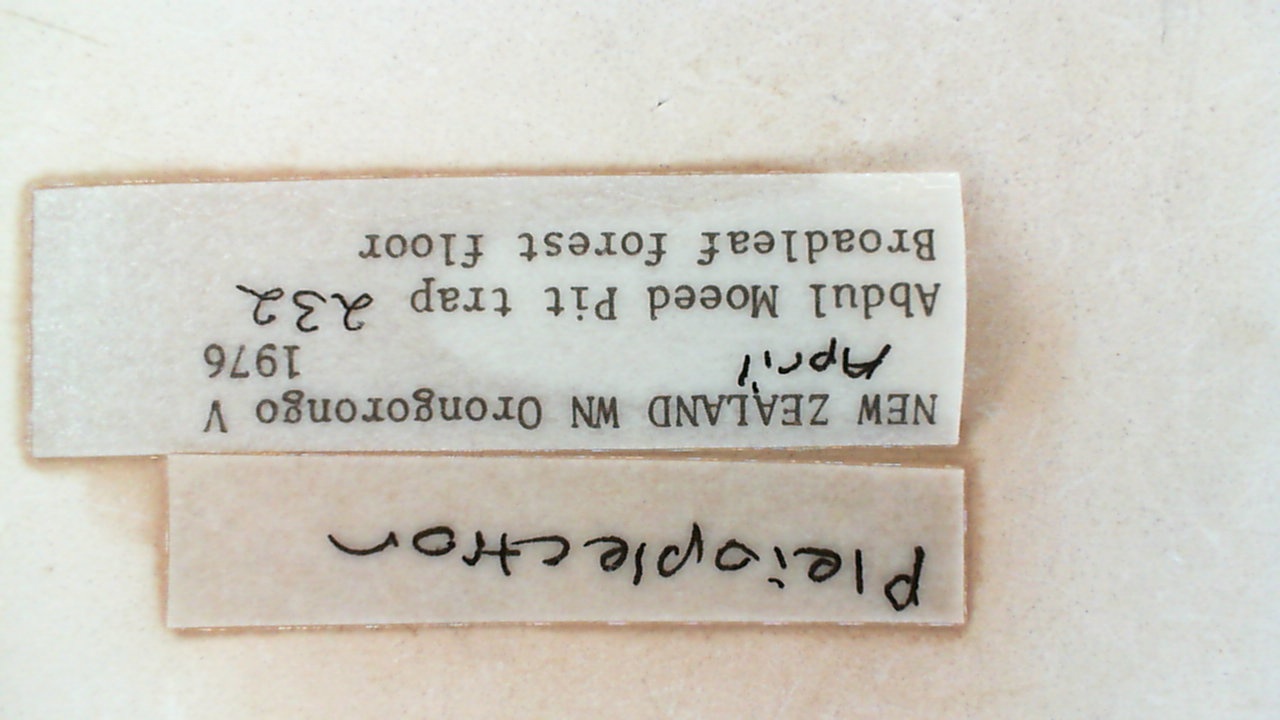 Pleioplectron
NEW ZEALAND WN Orongorongo V
April 1976
Abdul Moeed Pit trap 232
Broadleaf forest floor